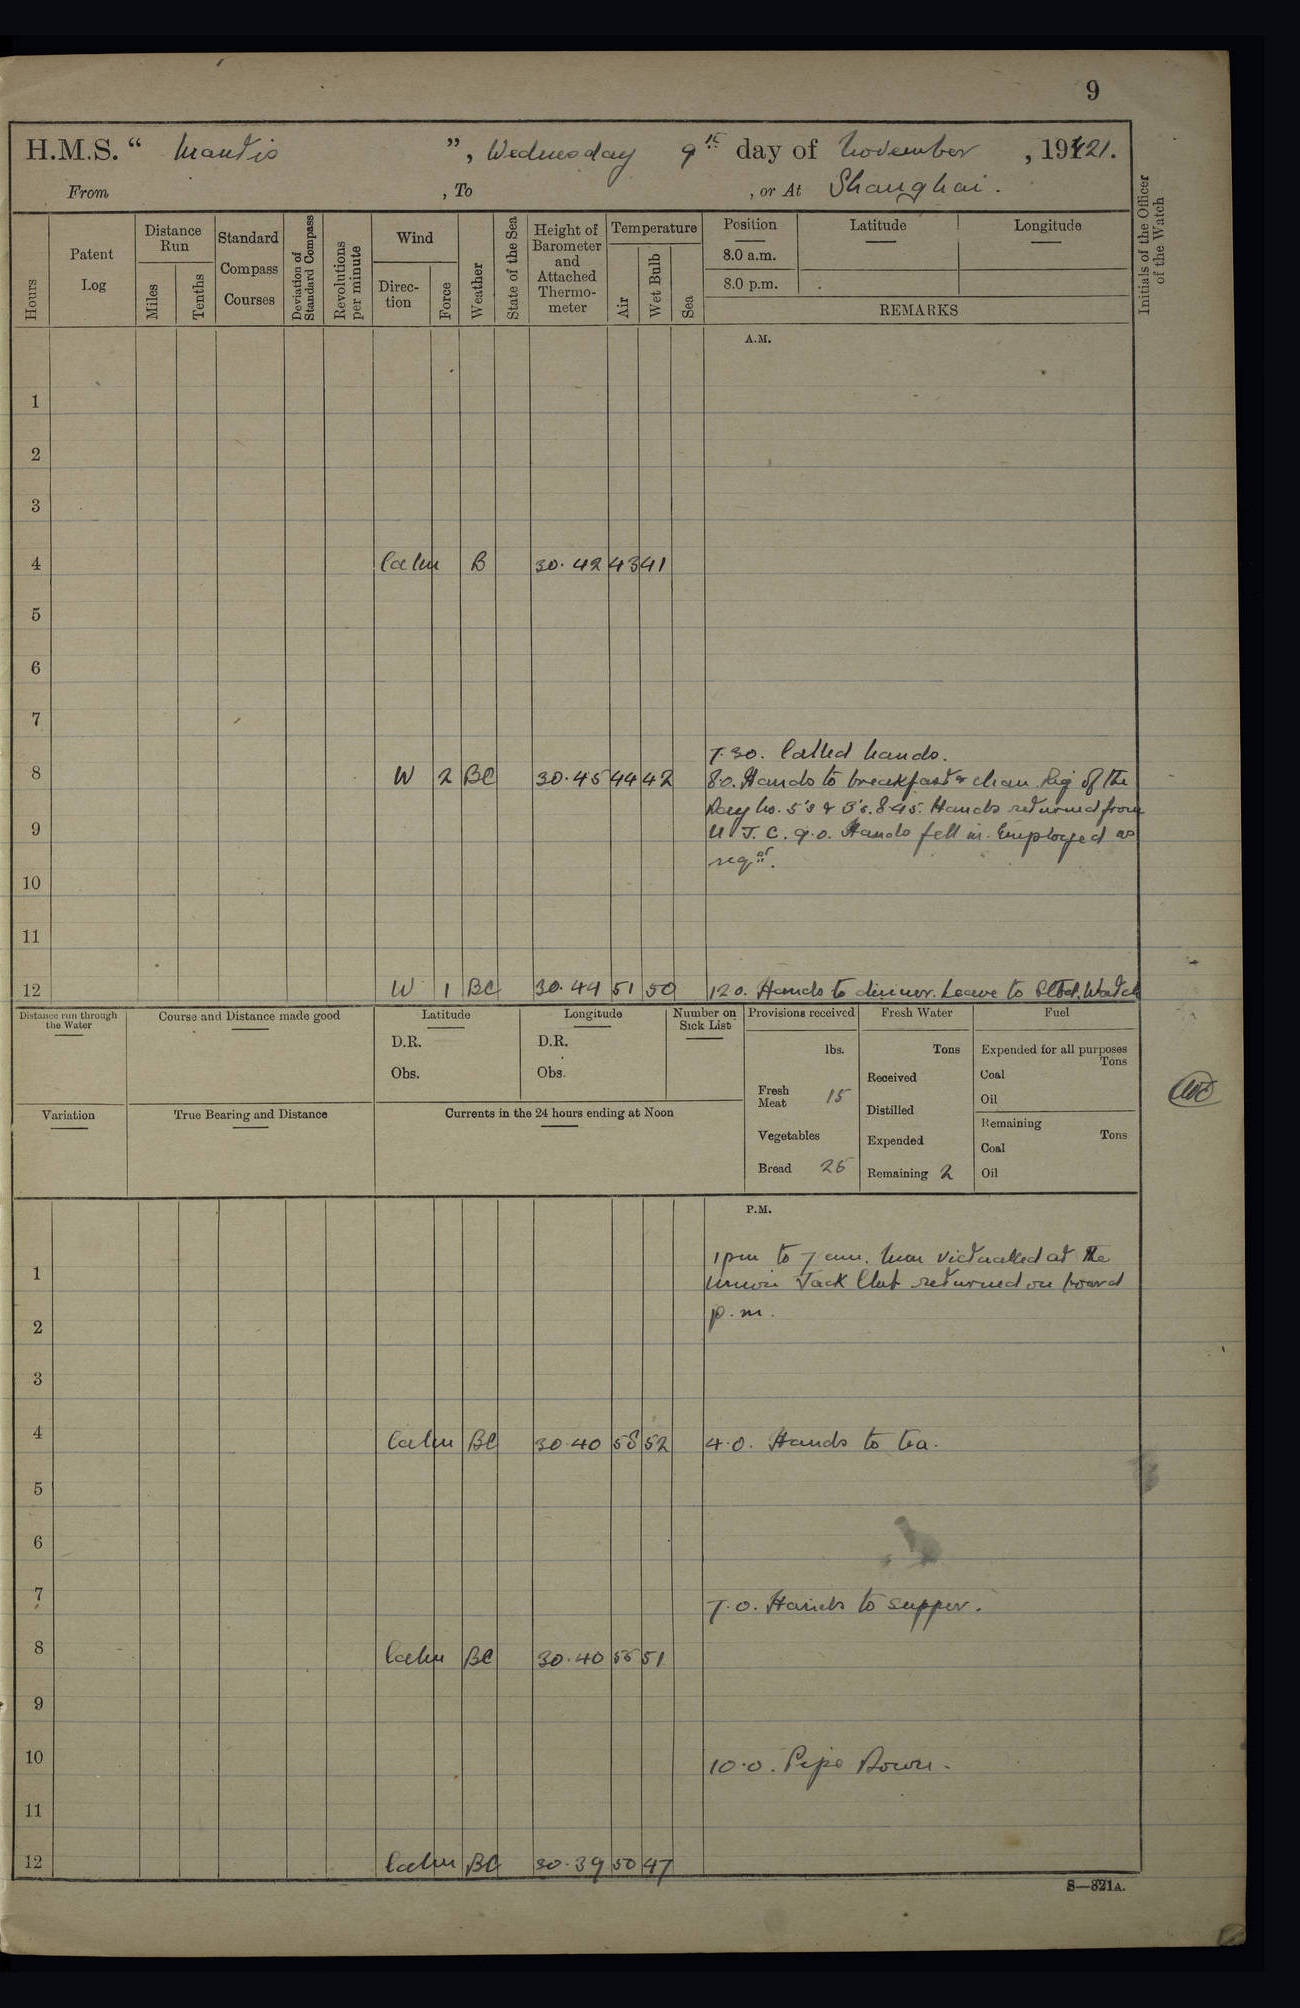 9
H.M.S. “ Mantis ”, Wednesday 9th day of November, 1921.
From , To , or At Shanghai.
Hours
Patent Log
Distance Run
Miles
Tenths
Standard Compass Courses
Deviation of Standard Compass
Revolutions per minute
Wind
Direction
Force
Weather
State of the Sea
Height of Barometer and Attached Thermometer
Temperature
Air
Wet Bulb
Sea
Position
Latitude
Longitude
8.0 a.m.
8.0 p.m.
REMARKS
Initials of the Officer of the Watch
A.M.
1
2
3
4 Calm B 30.42 43 41
5
6
7
7.30. Called hands.
8 W 2 BC 30.45 44 42 8.0. Hands to breakfast & clean. Rig of the
Day No. 5's & 3's. 8.45. Hands returned from
9 U.J.C. 9.0. Hands fell in. Employed as
reqd.
10
11
12 W 1 BC 30.44 51 50 12.0. Hands to dinner. Leave to Stbd. Watch
Distance run through the Water
Course and Distance made good
Latitude
D.R.
Obs.
Longitude
D.R.
Obs.
Number on Sick List
Provisions received
lbs.
Fresh Meat 15
Vegetables
Bread 25
Fresh Water
Tons
Received
Distilled
Expended
Remaining 2
Fuel
Expended for all purposes
Tons
Coal
Oil
Remaining
Tons
Coal
Oil
Variation
True Bearing and Distance
Currents in the 24 hours ending at Noon
P.M.
1pm to 7 am. Men victualled at the
1 Union Jack Club returned on board
p.m.
2
3
4 Calm BC 30.40 58 52 4.0. Hands to tea.
5
6
7 7.0. Hands to supper.
8 Calm BC 30.40 55 51
9
10 10.0. Pipe Down.
11
12 Calm BC 30.39 50 47
S—321A.